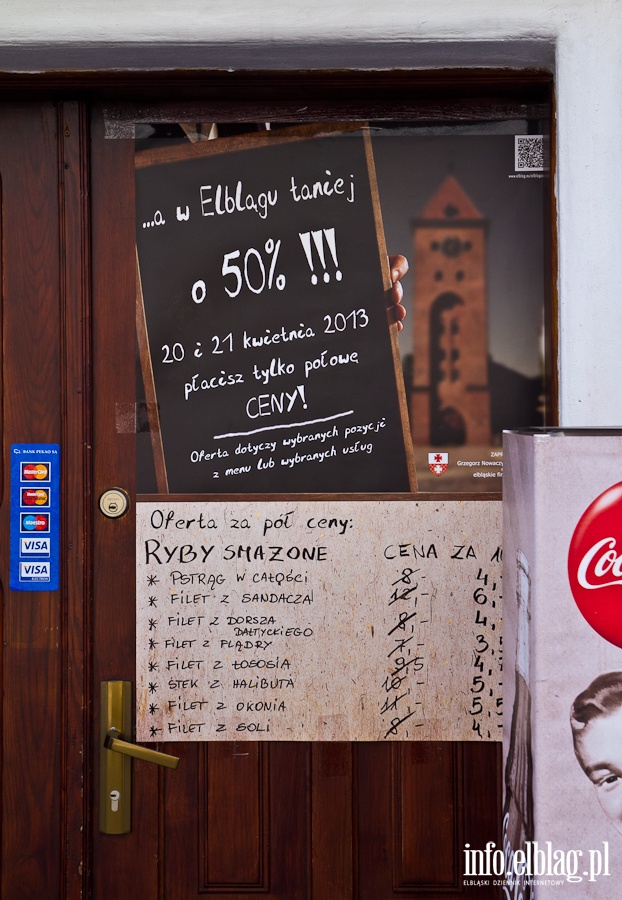 ...a w Elblągu taniej
o 50% !!!
20 i 21 kwietnia 2013
płacisz tylko połowę
CENY!
Oferta dotyczy wybranych pozycji
z menu lub wybranych usług
Grzegorz
elbląskie
BANK PEKAO SA
MasterCard
Maestro
VISA
VISA
Oferta za pół ceny:
RYBY SMAŻONE CENA ZA
* PSTRĄG W CAŁOŚCI 8,- 4,
* FILET Z SANDACZA 12,- 6,
* FILET Z DORSZA 8,- 4,
BAŁTYCKIEGO
* FILET Z FLĄDRY 7,- 3,5
* FILET Z ŁOSOSIA 9,5 4,
* STEK Z HALIBUTA 10,- 5,
* FILET Z OKONIA 11,- 5,5
* FILET Z SOLI 8,- 4,
Coc
info.elblag.pl
ELBLĄSKI DZIENNIK INTERNETOWY